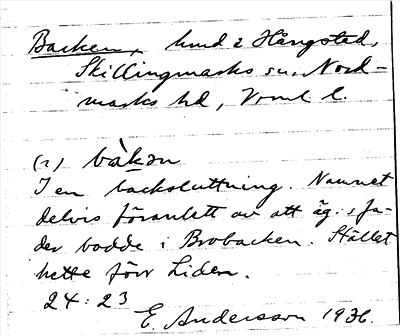 Backen, hmd 2 Hängstad,
Skillingmarks sn, Nord-
marks hd, Vrml l.
(1) bàkən
I en backsluttning. Namnet
delvis föranlett av att äg:s fa-
der bodde i Brobacken. Stället
hette förr Liden.
24:23
E. Andersson 1936.